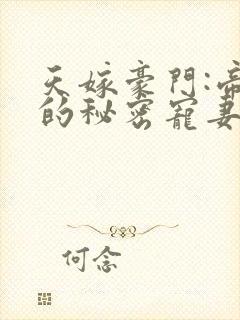 天嫁豪門:帝
的秘密寵妻
何念